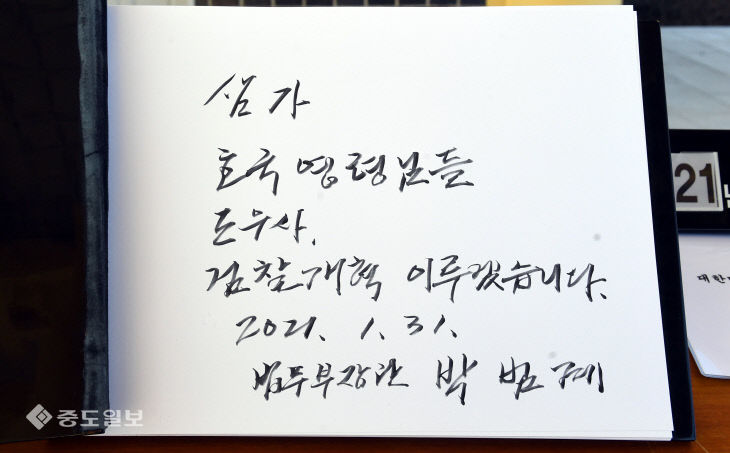 삼가
호국영령님들
도우사.
검찰개혁 이루겠습니다.
2021. 1. 31.
법무부장관 박 범 계
21
대한
중도일보